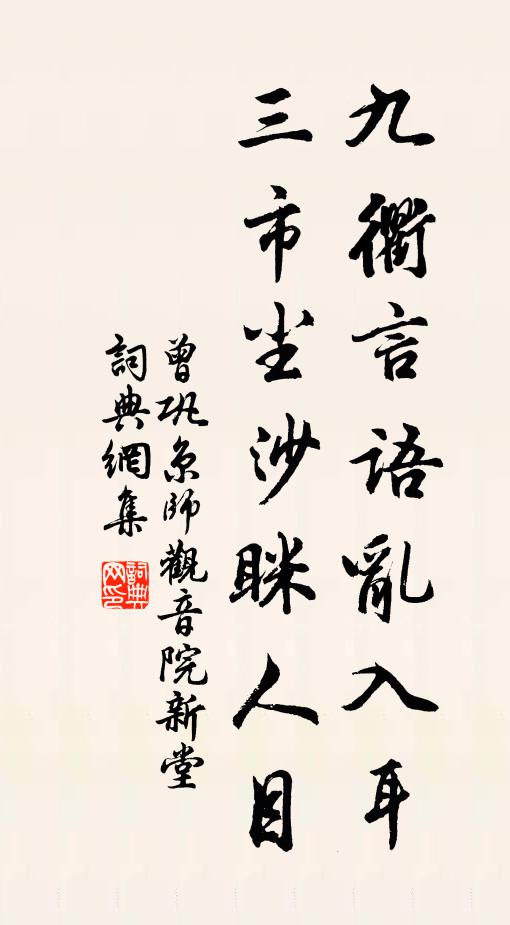 九衢言語亂入耳
三市尘沙眯人目
曾巩京師觀音院新堂
詞典網集
詞典网印